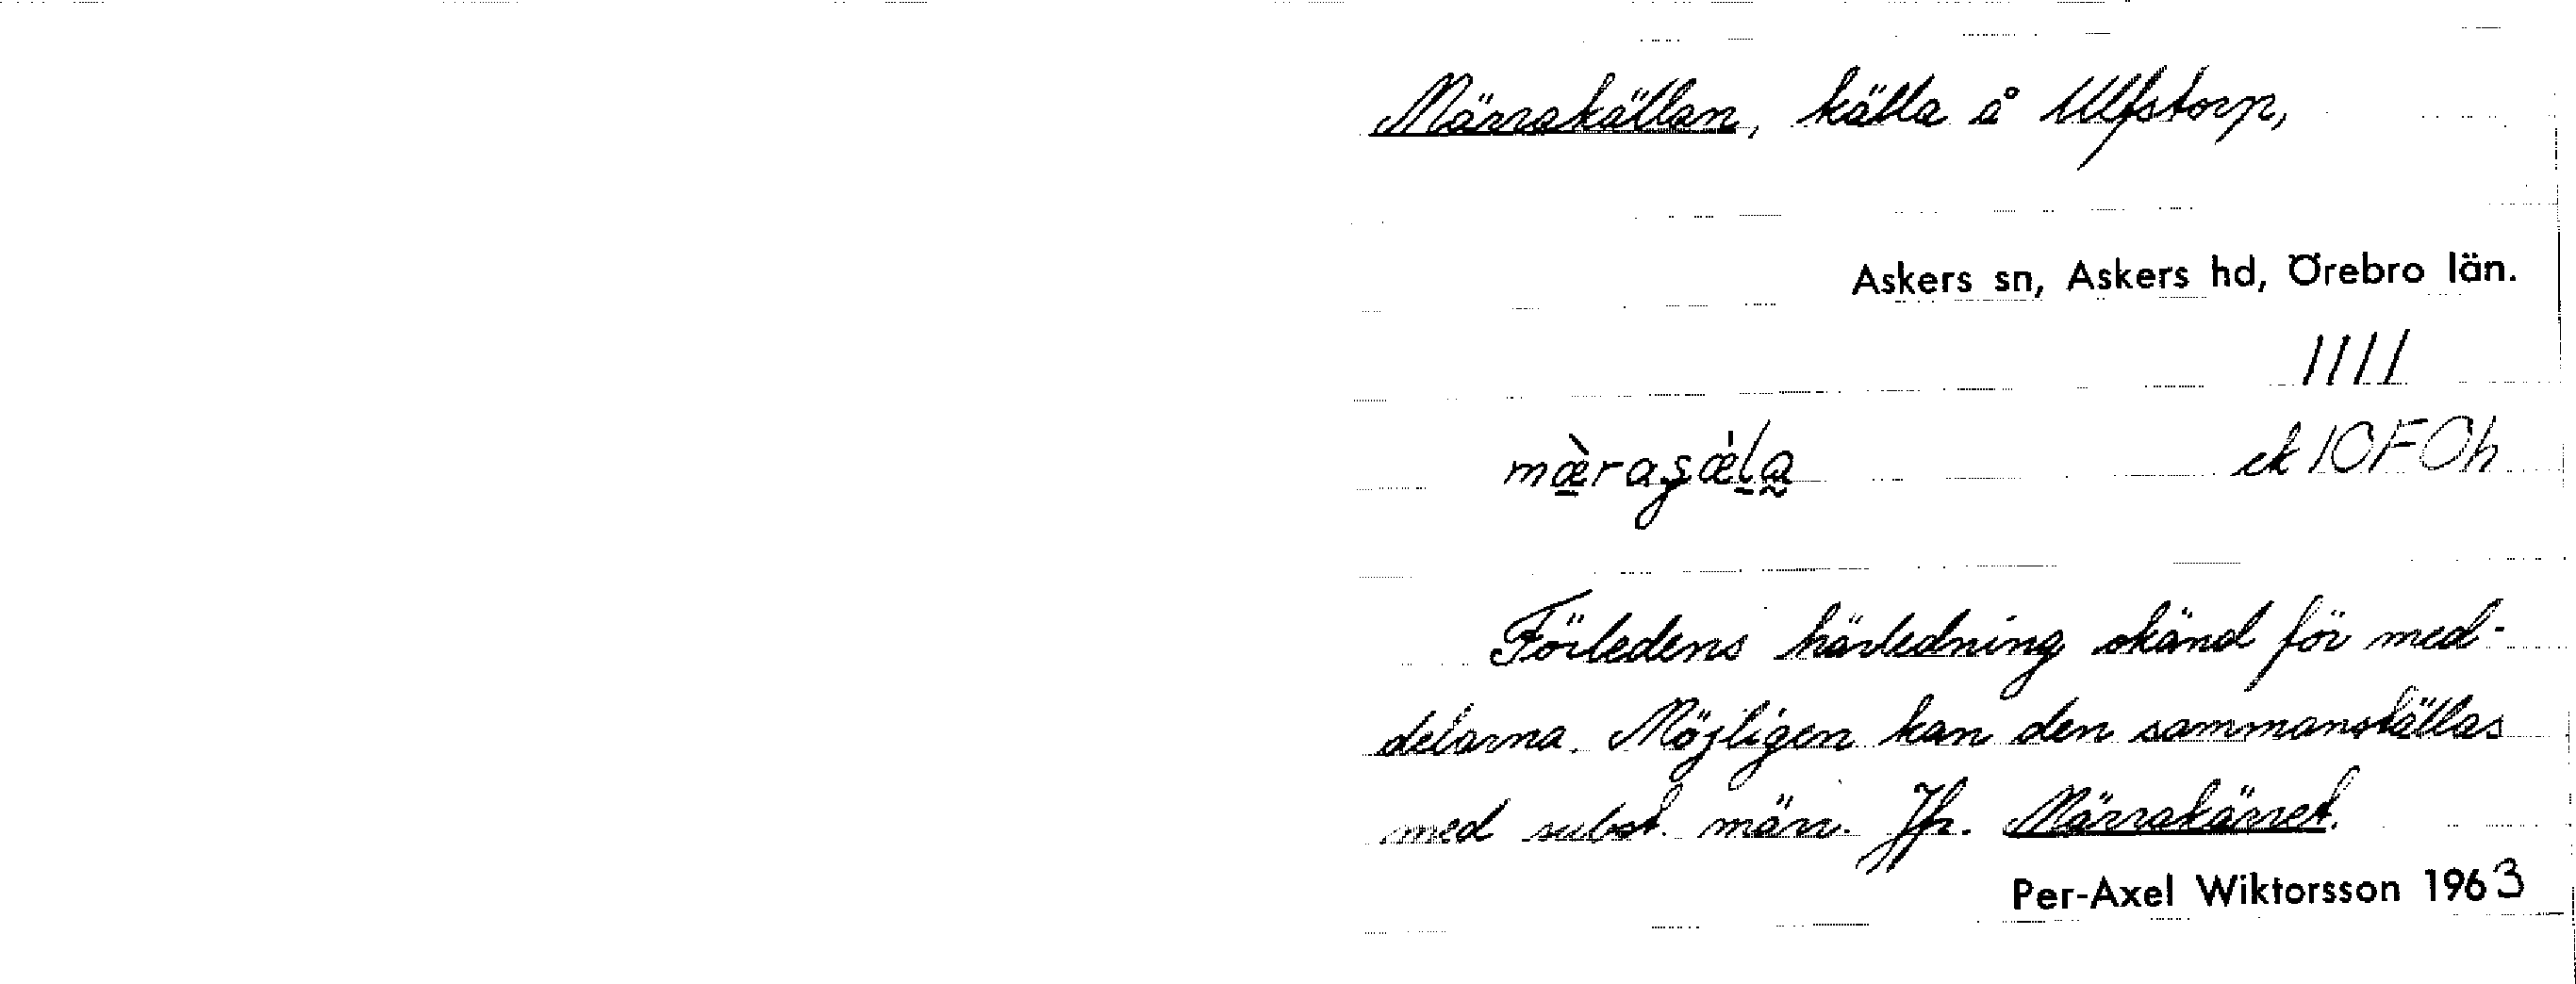 Märrakällan, källa å Ulfstorp,
Askers sn, Askers hd, Örebro län.
1111
ek 10F0h
Förledens härledning okänd för med-
delarna. Möjligen kan den sammanställas
med subst. märr. Jfr. Märrakärret.
Per-Axel Wiktorsson 1963